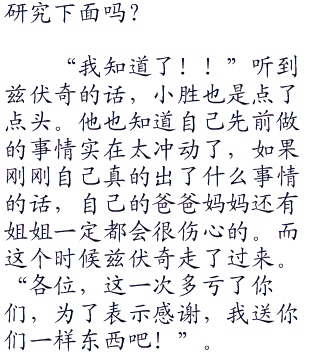 研究下面吗？
“我知道了！！”听到
兹伏奇的话，小胜也是点了
点头。他也知道自己先前做
的事情实在太冲动了，如果
刚刚自己真的出了什么事情
的话，自己的爸爸妈妈还有
姐姐一定都会很伤心的。而
这个时候兹伏奇走了过来。
“各位，这一次多亏了你
们，为了表示感谢，我送你
们一样东西吧！”。